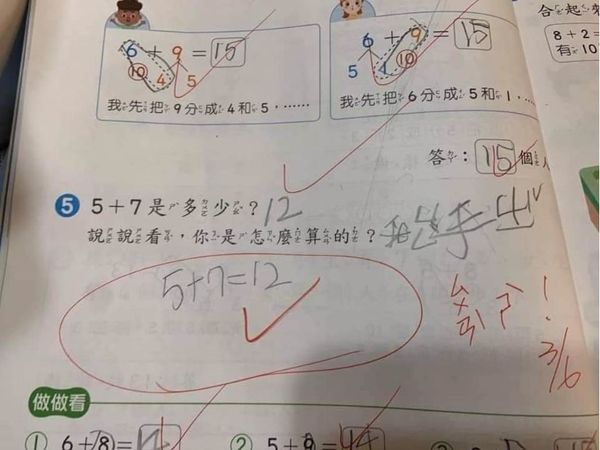 6 + 9 = 15
10 4 5
我先把9分成4和5，……
6 + 9 = 15
5 1 10
我先把6分成5和1，……
合起
8 + 2 =
有10
答：15個
5 5 + 7是多少？12
說說看，你是怎麼算的？
5+7=12
3/6
做做看
① 6 + 8 =
② 5 + 9 =